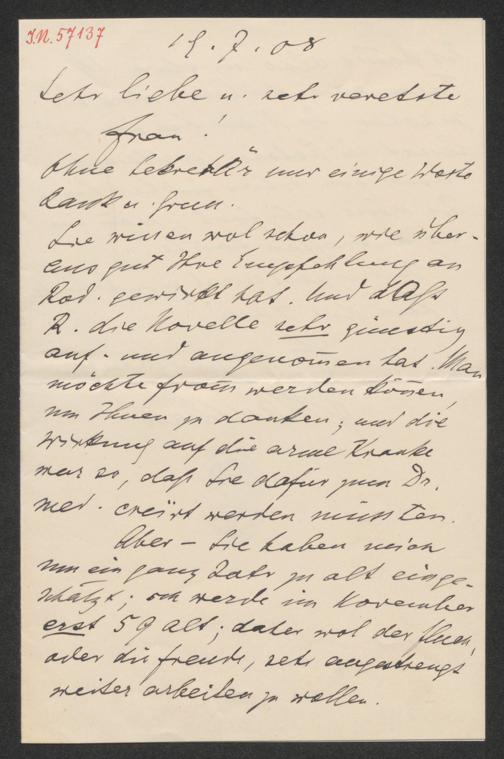 I.N. 57137
19.7.08
Sehr liebe u. sehr verehrte
Frau!
Ohne Sekretär nur einige Worte
Dank u. Gruss.
Sie wissen wol schon, wie über-
aus gut Ihre Empfehlung an
Rod. gewirkt hat. Und daß
R. die Novelle sehr günstig
auf- und angenommen hat. Man
möchte fromm werden können,
um Ihnen zu danken; und die
Wirkung auf die arme Kranke
war so, daß Sie dafür zum Dr.
med. creirt werden müssten.
Aber – Sie haben mich
um ein ganz Jahr zu alt einge-
schätzt; ich werde im November
erst 59 alt; daher wol der Fluch,
oder die Freude, sehr angestrengt
weiter arbeiten zu wollen.